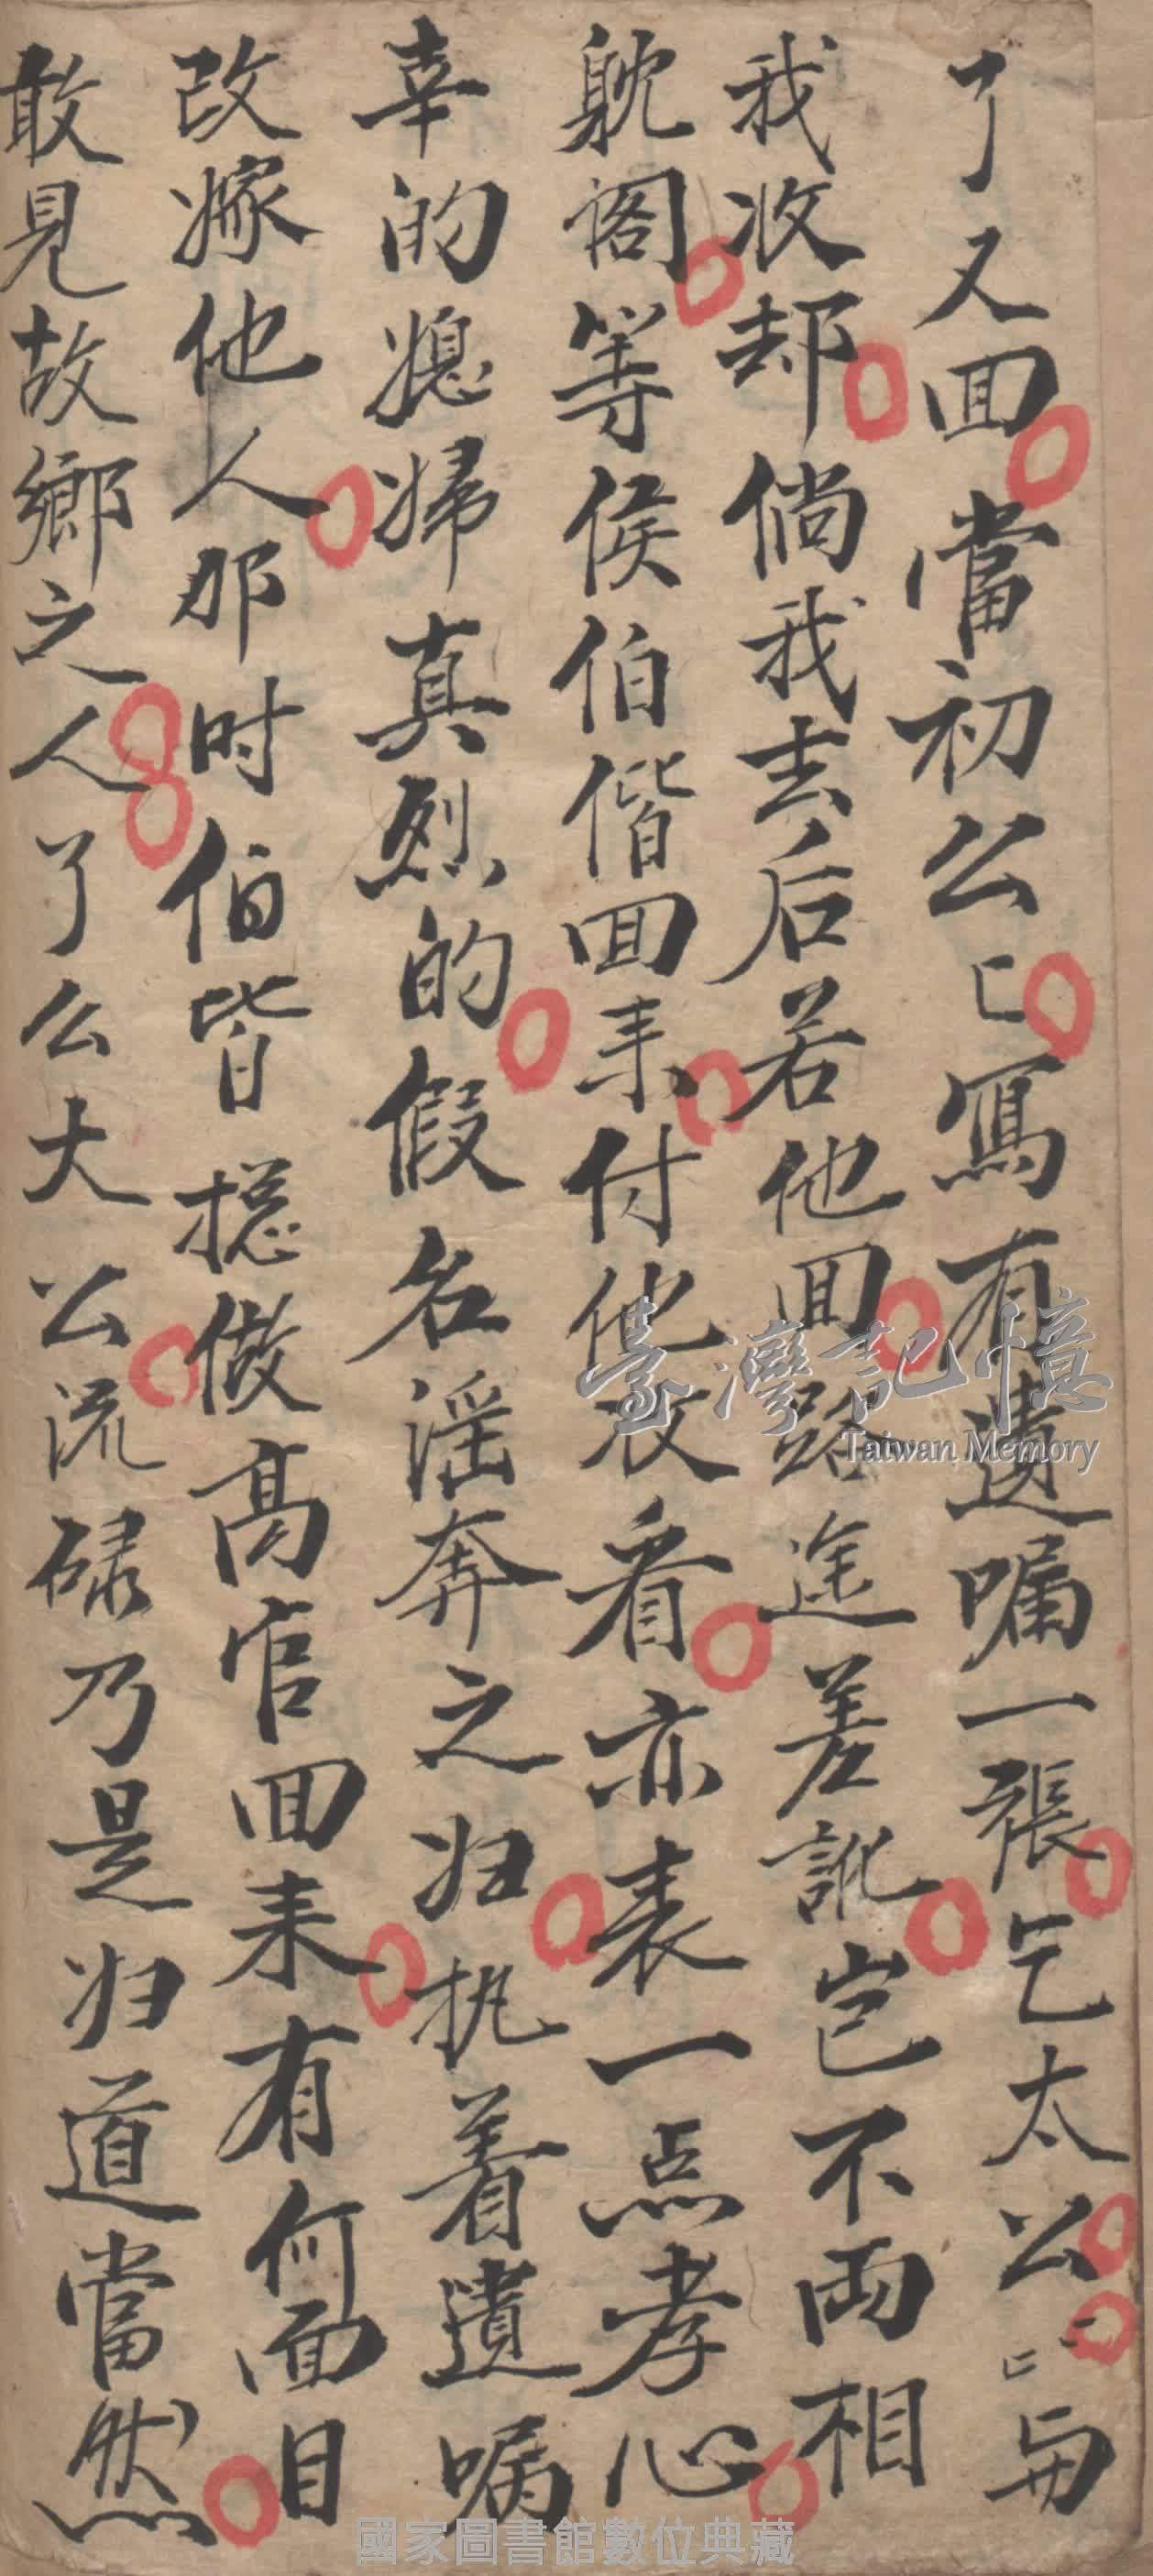 了又回當初公匕寫有遺嘱一張乞太公匕匕再
我收却倘我去后若他回路途差訛豈不兩相
躭阁等侯伯偕回来付他收看亦表一点孝心
辛的媳婦真烈的假名滛奔之归执着遺嘱
改嫁他人那时伯皆搃做高官回来有何面目
敢見故鄉之人了么大公流碌乃是归道當然
臺灣記憶
Taiwan Memory
國家圖書館數位典藏